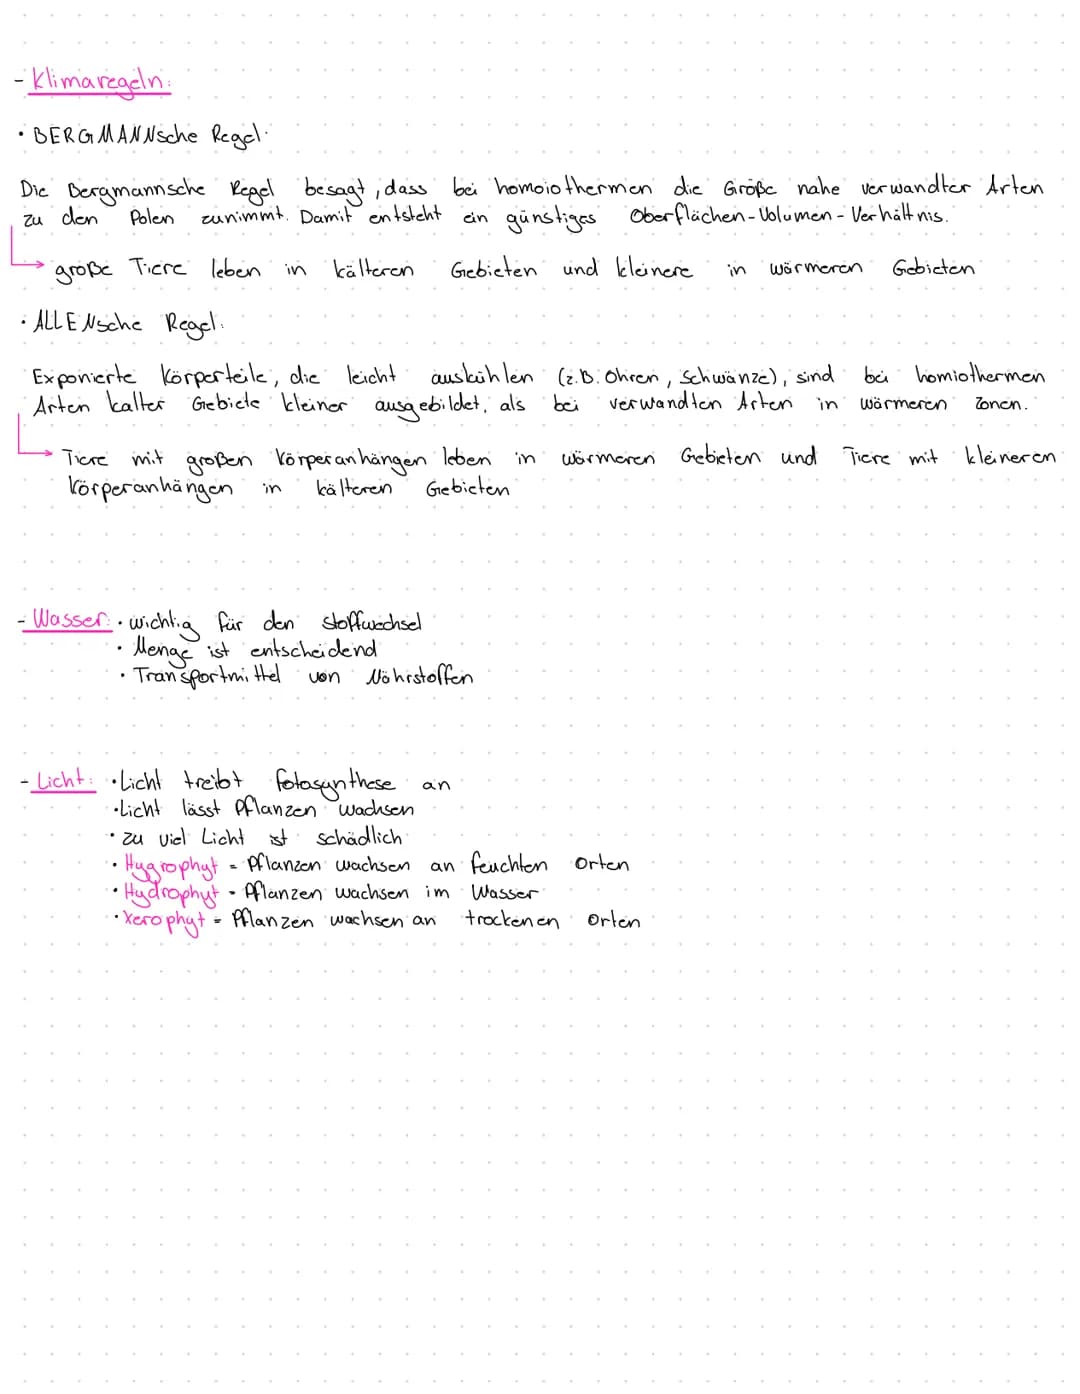 - Klimaregeln:
• BERGMANNsche Regel:
Die Bergmannsche Regel besagt, dass bei homoiothermen die Größe nahe verwandter Arten
zu den Polen zunimmt. Damit entsteht ein günstiges Oberflächen-Volumen-Verhältnis.
→ große Tiere leben in kälteren Gebieten und kleinere in wärmeren Gebieten
• ALLENsche Regel:
Exponierte Körperteile, die leicht auskühlen (z.B. Ohren, Schwänze), sind bei homiothermen
Arten kalter Gebiete kleiner ausgebildet, als bei verwandten Arten in wärmeren Zonen.
→ Tiere mit großen Körperanhängen leben in wärmeren Gebieten und Tiere mit kleineren
Körperanhängen in kälteren Gebieten
- Wasser: • wichtig für den Stoffwechsel
• Menge ist entscheidend
• Transportmittel von Nährstoffen
- Licht: • Licht treibt Fotosynthese an
• Licht lässt Pflanzen wachsen
• zu viel Licht ist schädlich
• Hygrophyt = Pflanzen wachsen an feuchten Orten
• Hydrophyt = Pflanzen wachsen im Wasser
• Xerophyt = Pflanzen wachsen an trockenen Orten